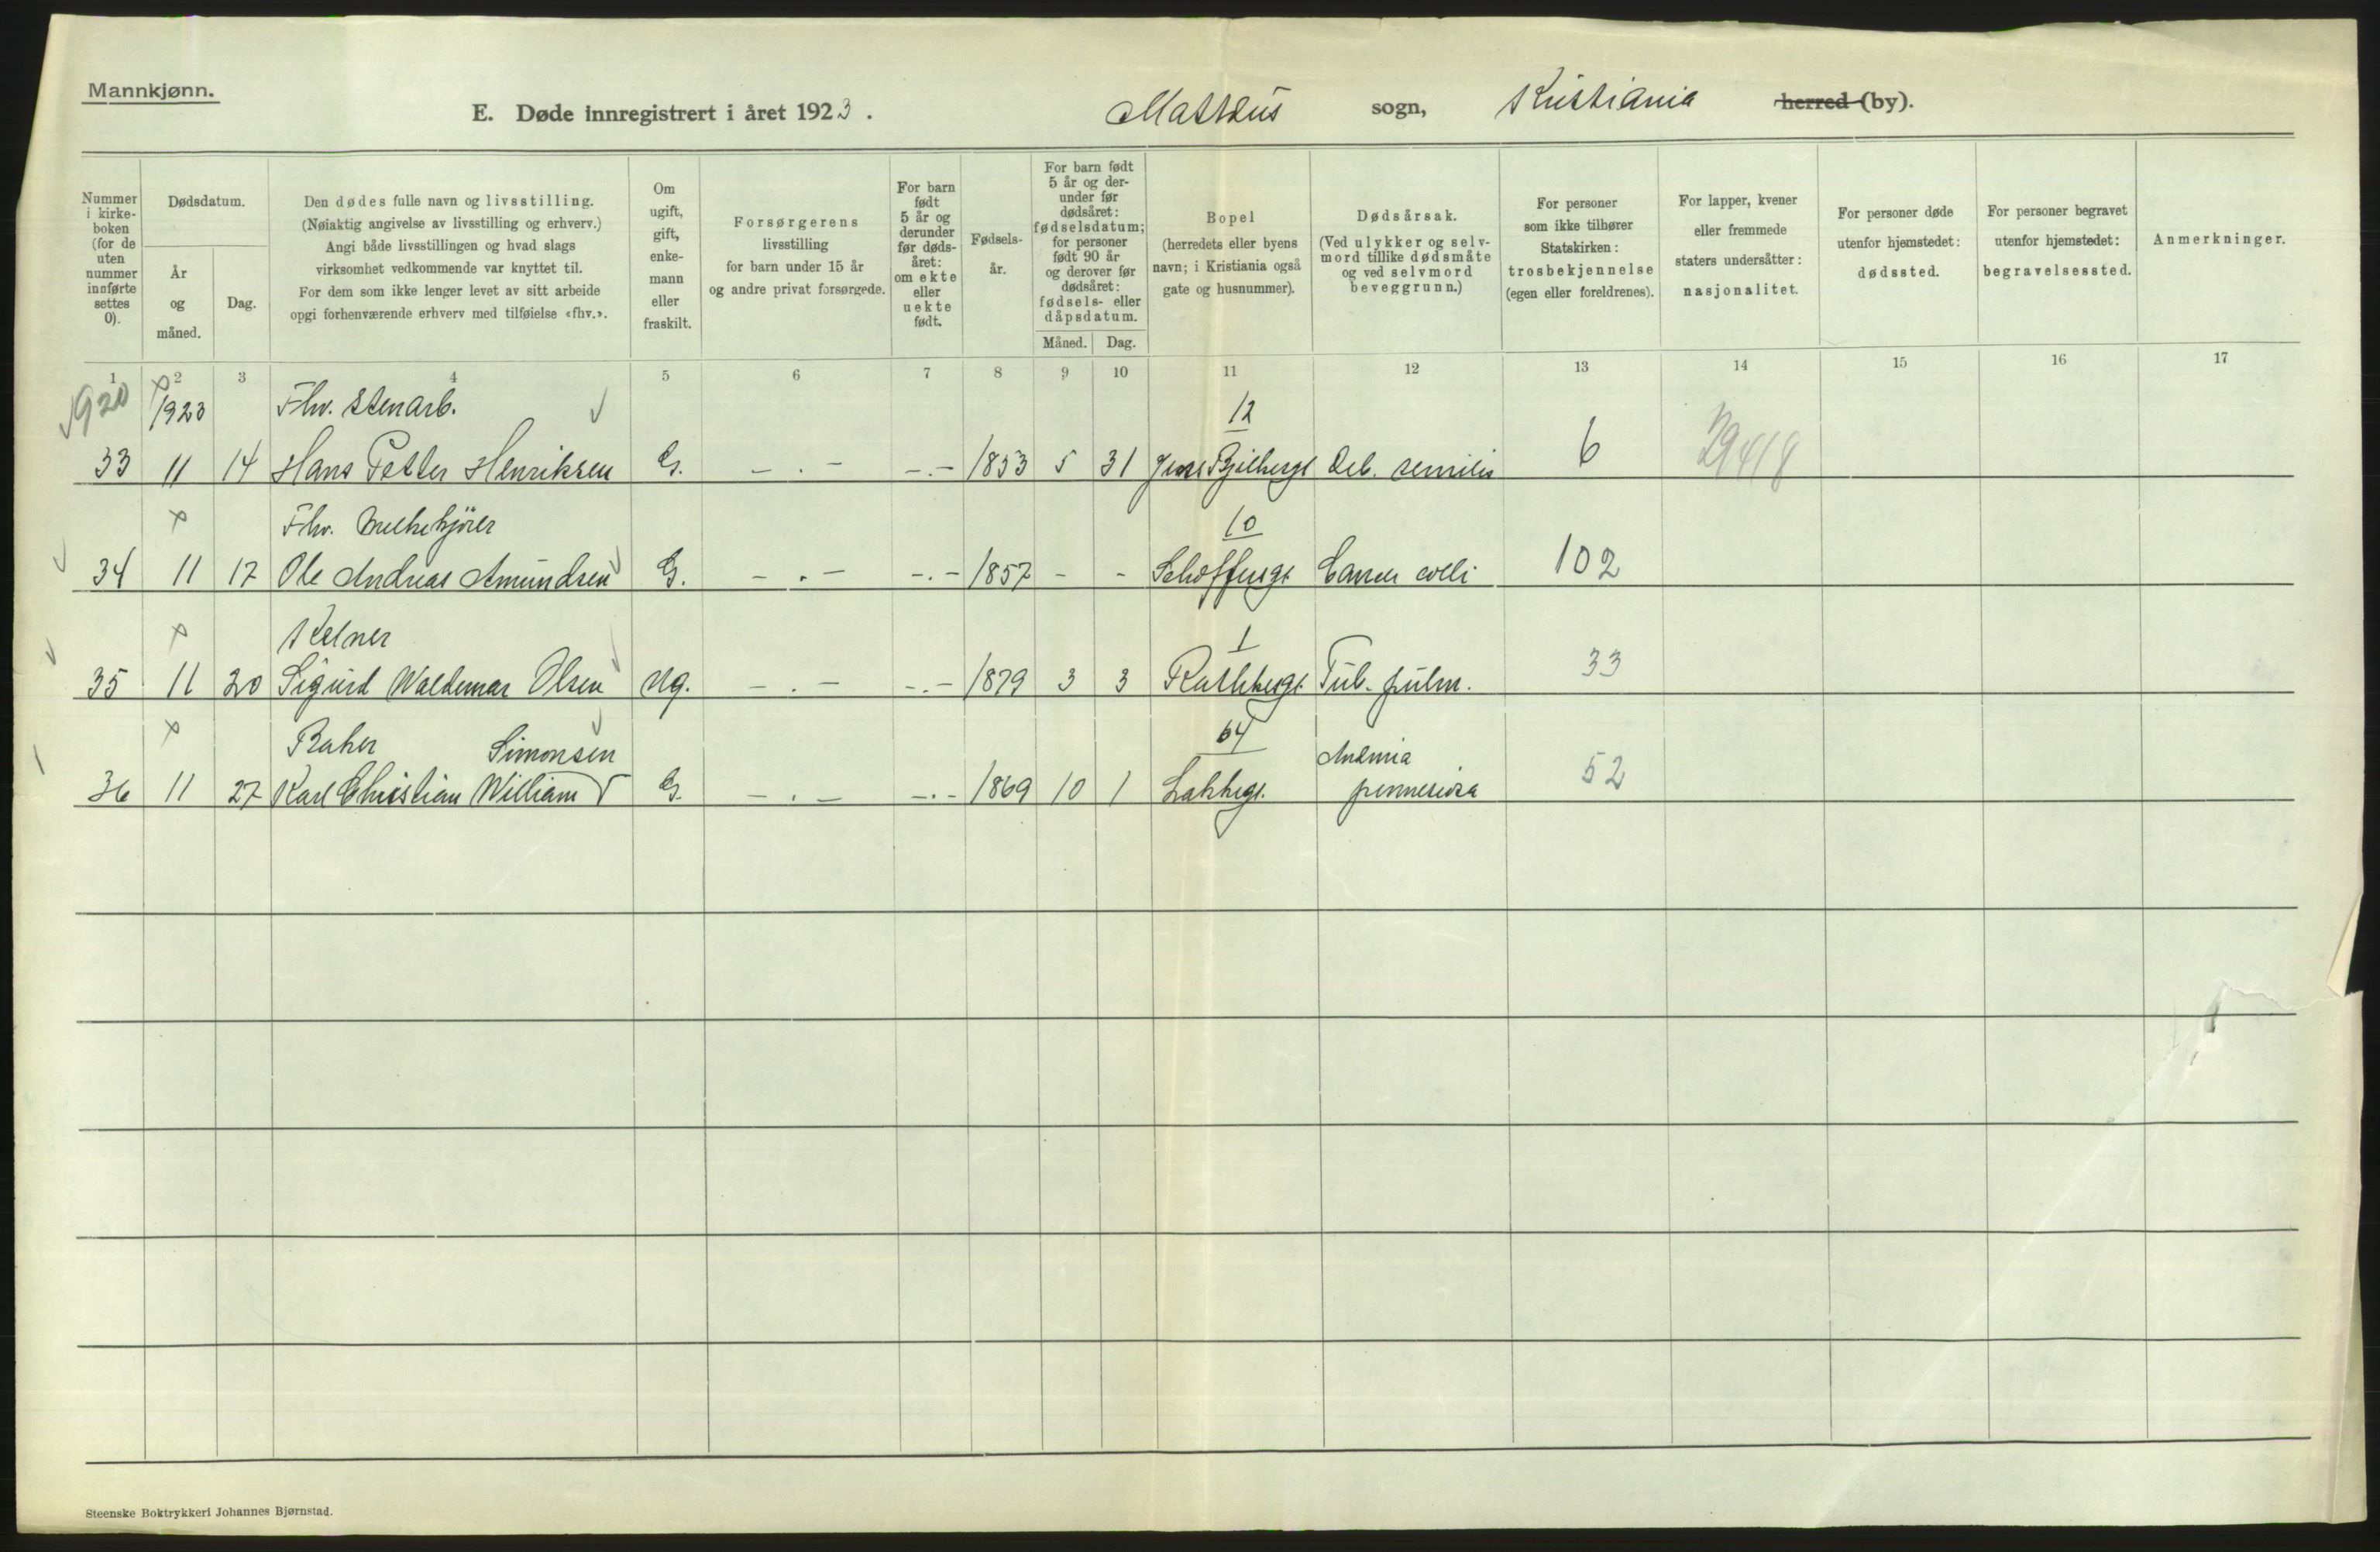 Mannkjønn.
E. Døde innregistrert i året 1923. Mattæus sogn, Kristiania herred (by).
Nummer i kirkeboken (for de uten nummer innførte settes 0).
Dødsdatum.
År og måned.
Dag.
Den dødes fulle navn og livsstilling.
(Nøiaktig angivelse av livsstilling og erhverv.)
Angi både livsstillingen og hvad slags
virksomhet vedkommende var knyttet til.
For dem som ikke lenger levet av sitt arbeide
opgi forhenværende erhverv med tilføielse «fhv.».
Om ugift, gift, enkemann eller fraskilt.
Forsørgerens
livsstilling
for barn under 15 år
og andre privat forsørgede.
For barn født 5 år og derunder før dødsåret: om ekte eller uekte født.
Fødselsår.
For barn født 5 år og derunder før dødsåret: fødselsdatum; for personer født 90 år og derover før dødsåret: fødsels- eller dåpsdatum.
Måned. Dag.
Bopel
(herredets eller byens
navn; i Kristiania også
gate og husnummer).
Dødsårsak.
(Ved ulykker og selvmord tillike dødsmåte
og ved selvmord
beveggrunn.)
For personer
som ikke tilhører
Statskirken:
trosbekjennelse
(egen eller foreldrenes).
For lapper, kvener
eller fremmede
staters undersåtter:
nasjonalitet.
For personer døde
utenfor hjemstedet:
dødssted.
For personer begravet
utenfor hjemstedet:
begravelsessted.
Anmerkninger.
1 2 3 4 5 6 7 8 9 10 11 12 13 14 15 16 17
920 1923 Fhv. Stenarb. 12
33 11 14 Hans Petter Henriksen G. -.- -.- 1853 5 31 Jens Bjelkesgt Deb. senilis 6 29418
Fhv. Melkekjörer 10
34 11 17 Ole Andreas Amundsen G. -.- -.- 1857 - - Schoffusgt Cancer colli 102
Kelner 1
35 11 20 Sigurd Waldemar Olsen Ug. -.- -.- 1879 3 3 Rathkesgt. Tub. pulm. 33
Baker Simonsen 64 Anæmia
36 11 27 Karl Christian William G. -.- -.- 1869 10 1 Lakkegt. perniciosa 52
Steenske Boktrykkeri Johannes Bjørnstad.